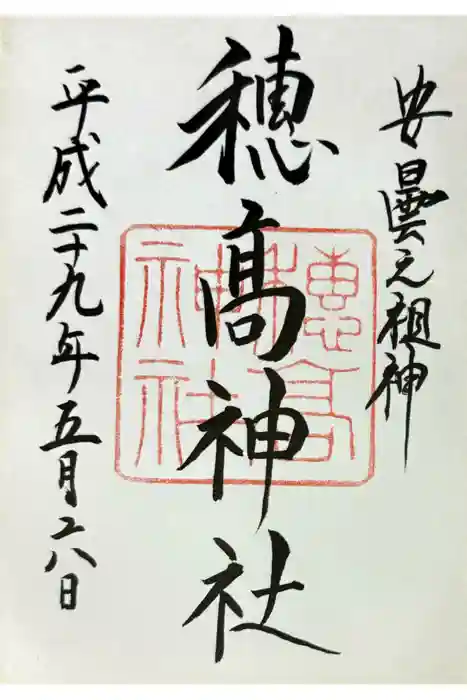 安曇之祖神
穂髙神社
平成二十九年五月二八日
穂高神社